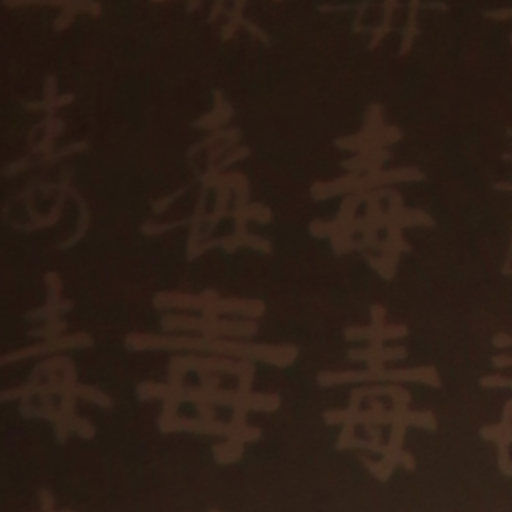 毒 毒 毒
毒 毒 毒